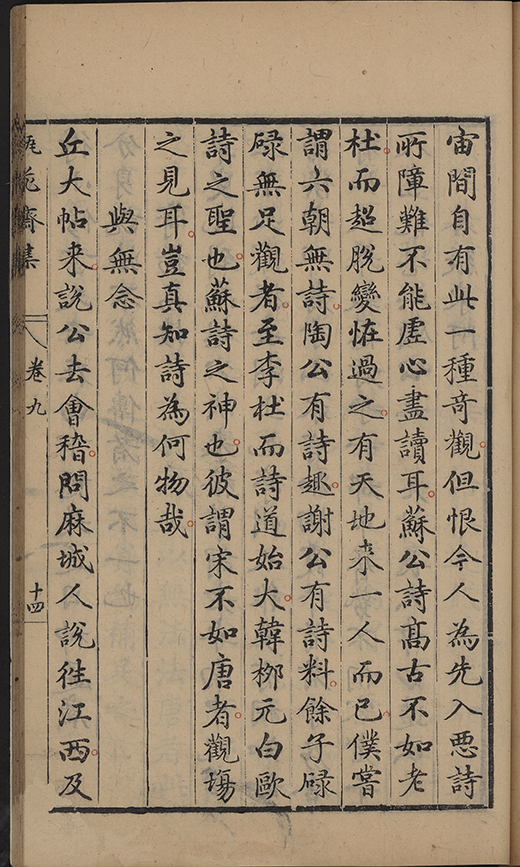 宙間自有此一種奇觀但恨今人為先入惡詩
所障難不能虛心盡讀耳蘇公詩高古不如老
杜而超脫變恠過之有天地来一人而已僕嘗
謂六朝無詩陶公有詩趣謝公有詩料餘子碌
碌無足觀者至李杜而詩道始大韓栁元白歐
詩之聖也蘇詩之神也彼謂宋不如唐者觀塲
之見耳豈真知詩為何物哉
與無念
丘大帖来說公去會稽問麻城人說徃江西及
瓶花齋集
卷九
十四